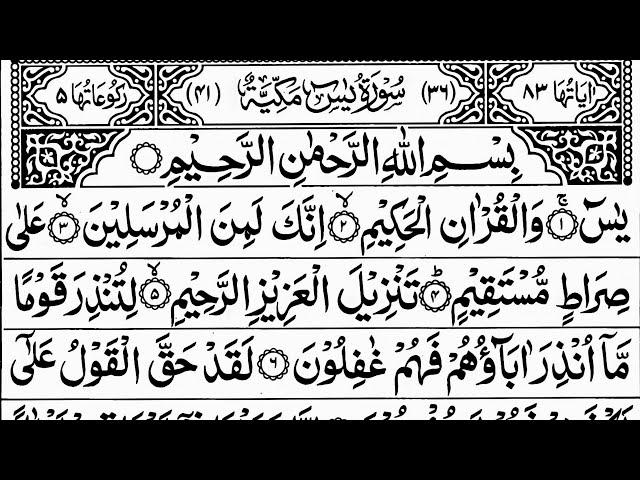 اٰیَاتُهَا ٨٣ (٣٦) سُوْرَةُ یٰسٓ مَكِّیَّةٌ (٤١) رُكُوْعَاتُهَا ٥
بِسْمِ اللّٰهِ الرَّحْمٰنِ الرَّحِیْمِ
یٰسٓ ۚ‏﴿١﴾ وَالْقُرْاٰنِ الْحَكِیْمِ ۙ‏﴿٢﴾ اِنَّكَ لَمِنَ الْمُرْسَلِیْنَ ۙ‏﴿٣﴾ عَلٰی
صِرَاطٍ مُّسْتَقِیْمٍ ؕ‏﴿٤﴾ تَنْزِیْلَ الْعَزِیْزِ الرَّحِیْمِ ۙ‏﴿٥﴾ لِتُنْذِرَ قَوْمًا
مَّاۤ اُنْذِرَ اٰبَآؤُهُمْ فَهُمْ غٰفِلُوْنَ ﴿٦﴾ لَقَدْ حَقَّ الْقَوْلُ عَلٰۤی